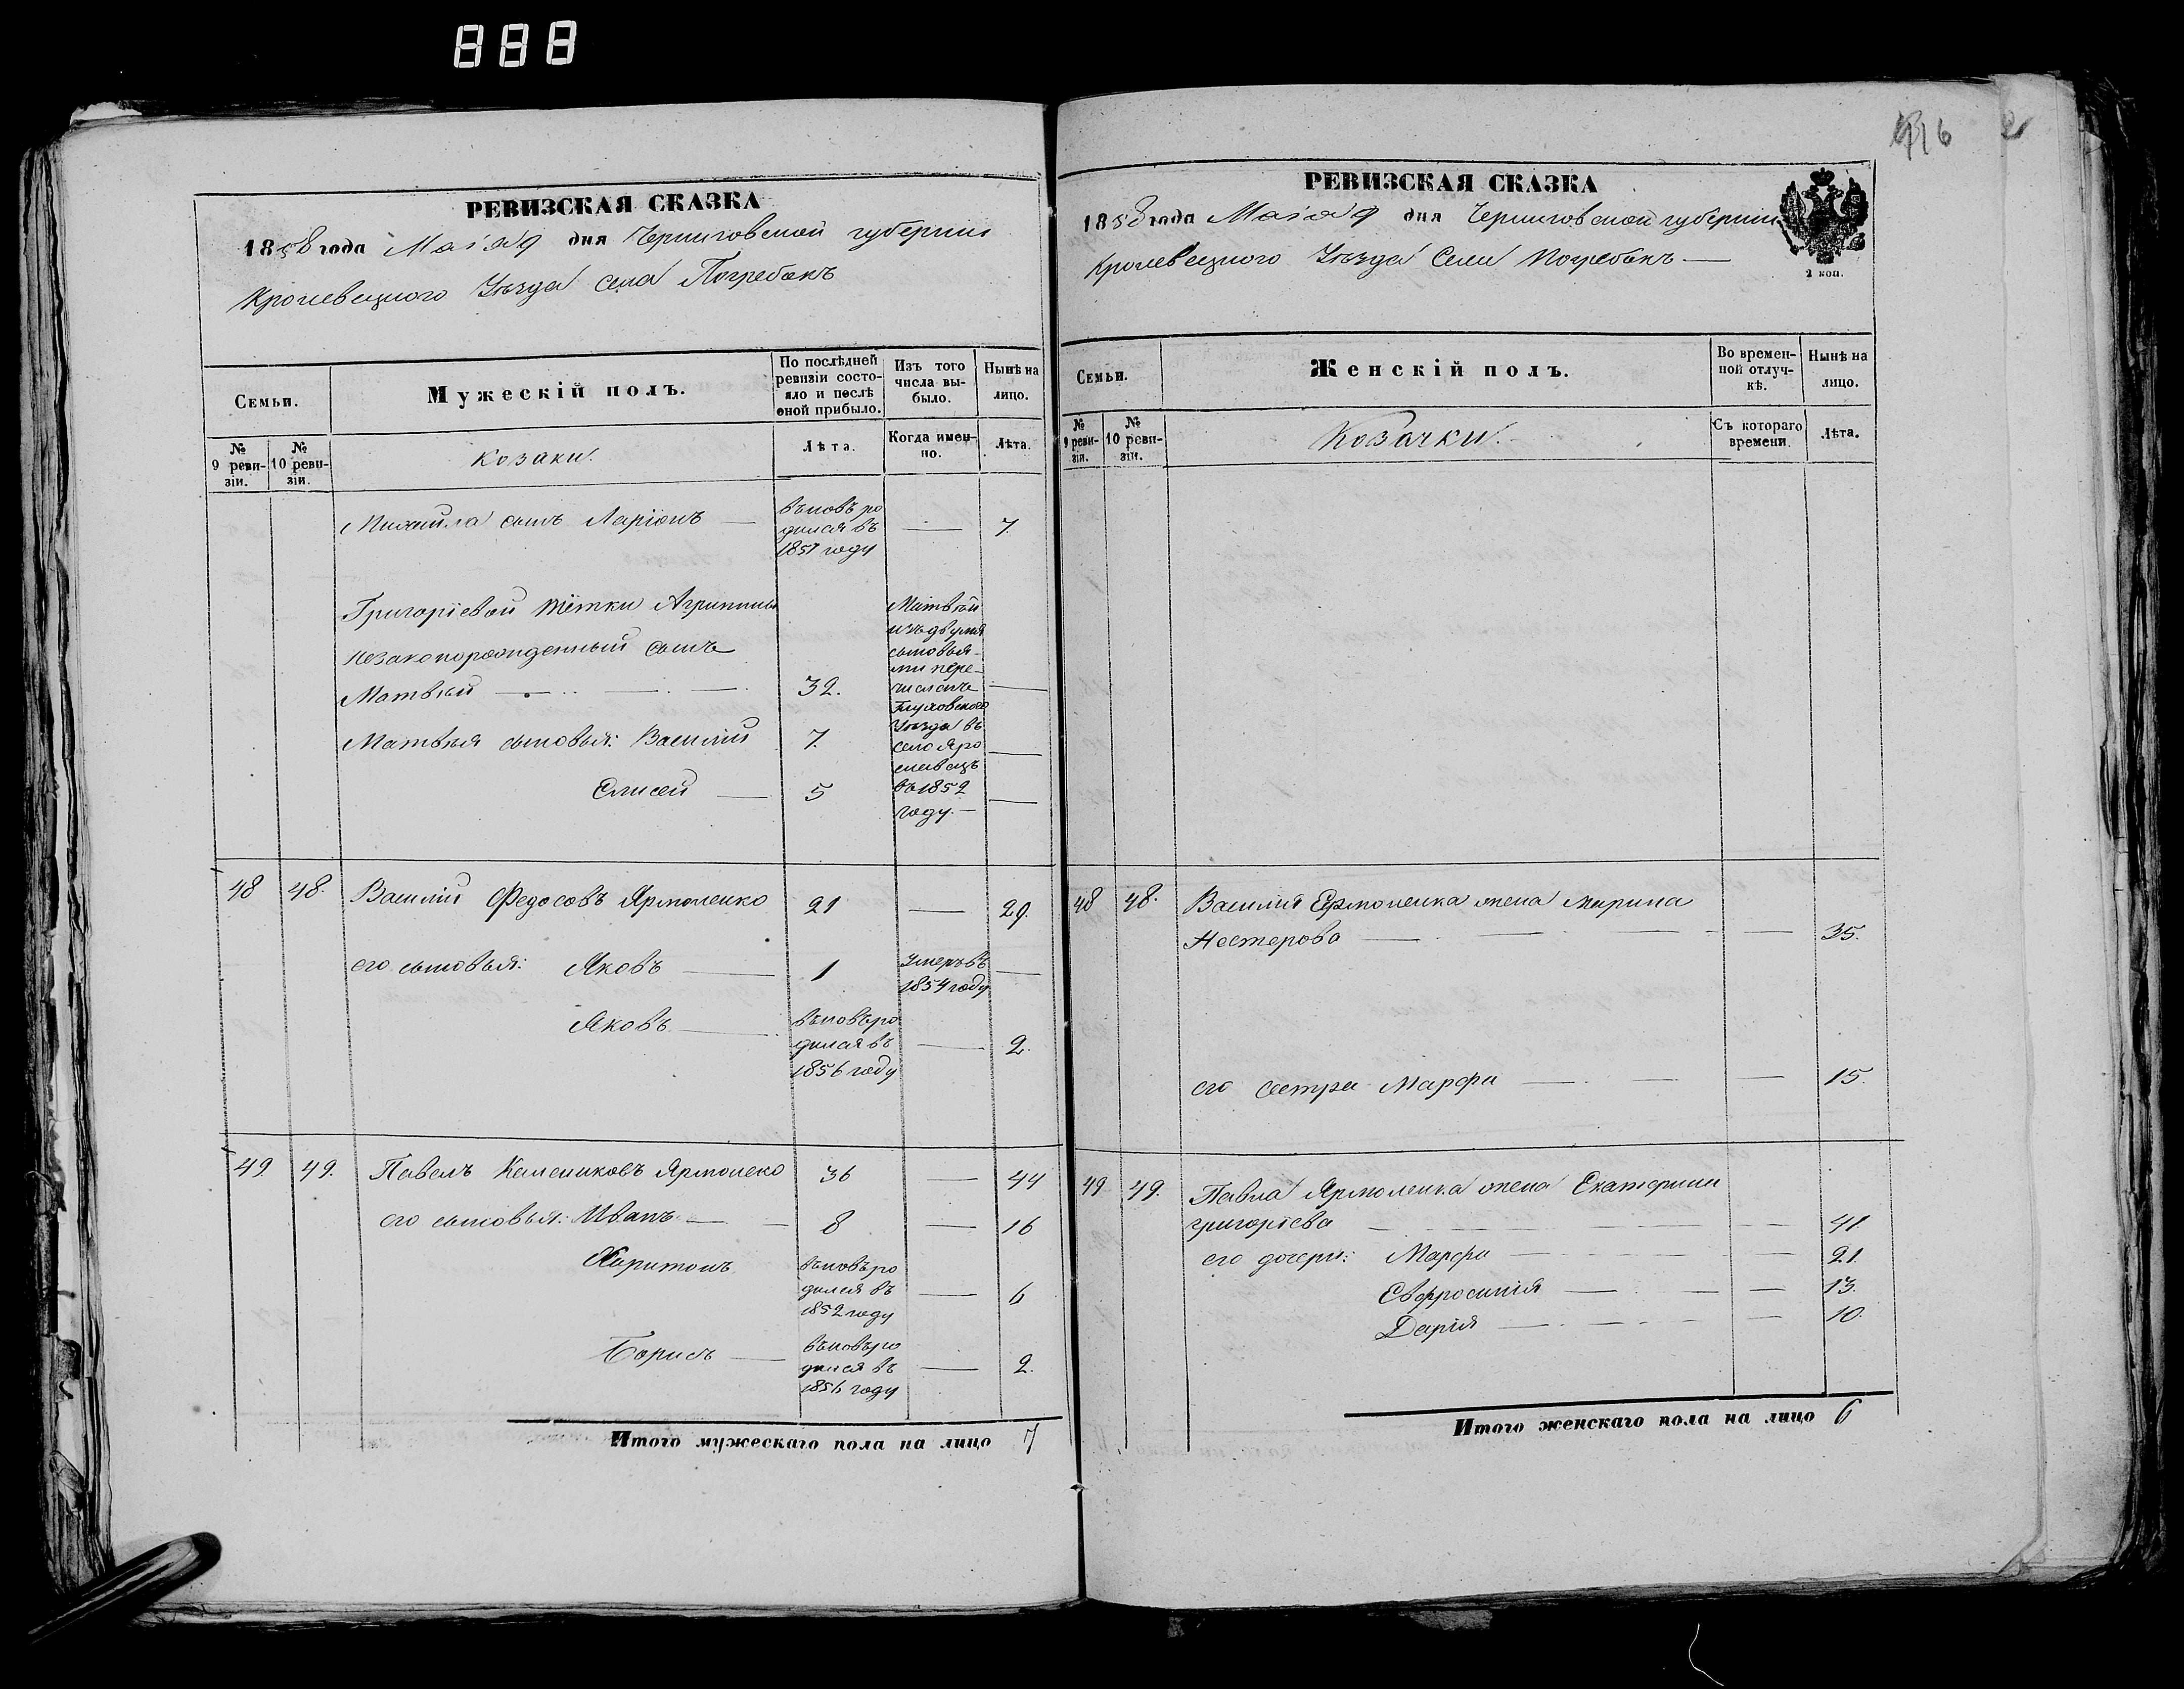 888
116
РЕВИЗСКАЯ СКАЗКА
1858 года Маія 9 дня Черниговской губерніи
Кролевецкого Уѣзда села Погребокъ
Семьи.
Мужескій полъ.
По послѣдней ревизіи состояло и послѣ оной прибыло.
Изъ того числа выбыло.
Нынѣ на лицо.
№ 9 ревизіи.
№ 10 ревизіи.
Козаки.
Лѣта.
Когда именно.
Лѣта.
Михайла сынъ Ларіонъ — вьновь родился въ 1851 году — 7
Григоріевой тётки Агрипины
незаконорожденный сынъ
Матвѣй — 32.
Матвѣя сыновья: Василій 7. —
Елисей — 5 —
Матвѣй
изъ двумя
сыновья-
ми пере-
численъ
Глуховского
Уѣзда въ
село Яро
славецъ
въ 1852
году. —
48 48. Василій Федосовъ Ярмоленко 21 — 29.
его сыновья: Яковъ — 1 Умеръ въ 1854 году —
Яковъ — вьновь родился въ 1856 году — 2.
49. 49. Павелъ Ярмоленко 36 — 44
его сыновья: Иванъ — 8 — 16
Харитонъ вьновь родился въ 1852 году — 6
Борисъ — вьновь родился въ 1856 году — 2.
Итого мужескаго пола на лицо 7
РЕВИЗСКАЯ СКАЗКА
1858 года Маія 9 дня Черниговской губерніи
Кролевецкого Уѣзда Села Погребокъ —
2 коп.
Семьи.
Женскій полъ.
Во временной отлучкѣ.
Нынѣ на лицо.
№ 9 ревизіи.
№ 10 ревизіи.
Козачки.
Съ котораго времени.
Лѣта.
48 48. Василія Ермоленка жена Марина
Нестерова — 35.
его сестра Марфа — 15.
49 49. Павла Ярмоленка жена Екатерина
григоріева — 41.
его дочери: Марфа — 21.
Евфросинія — 13.
Дарія — 10.
Итого женскаго пола на лицо 6